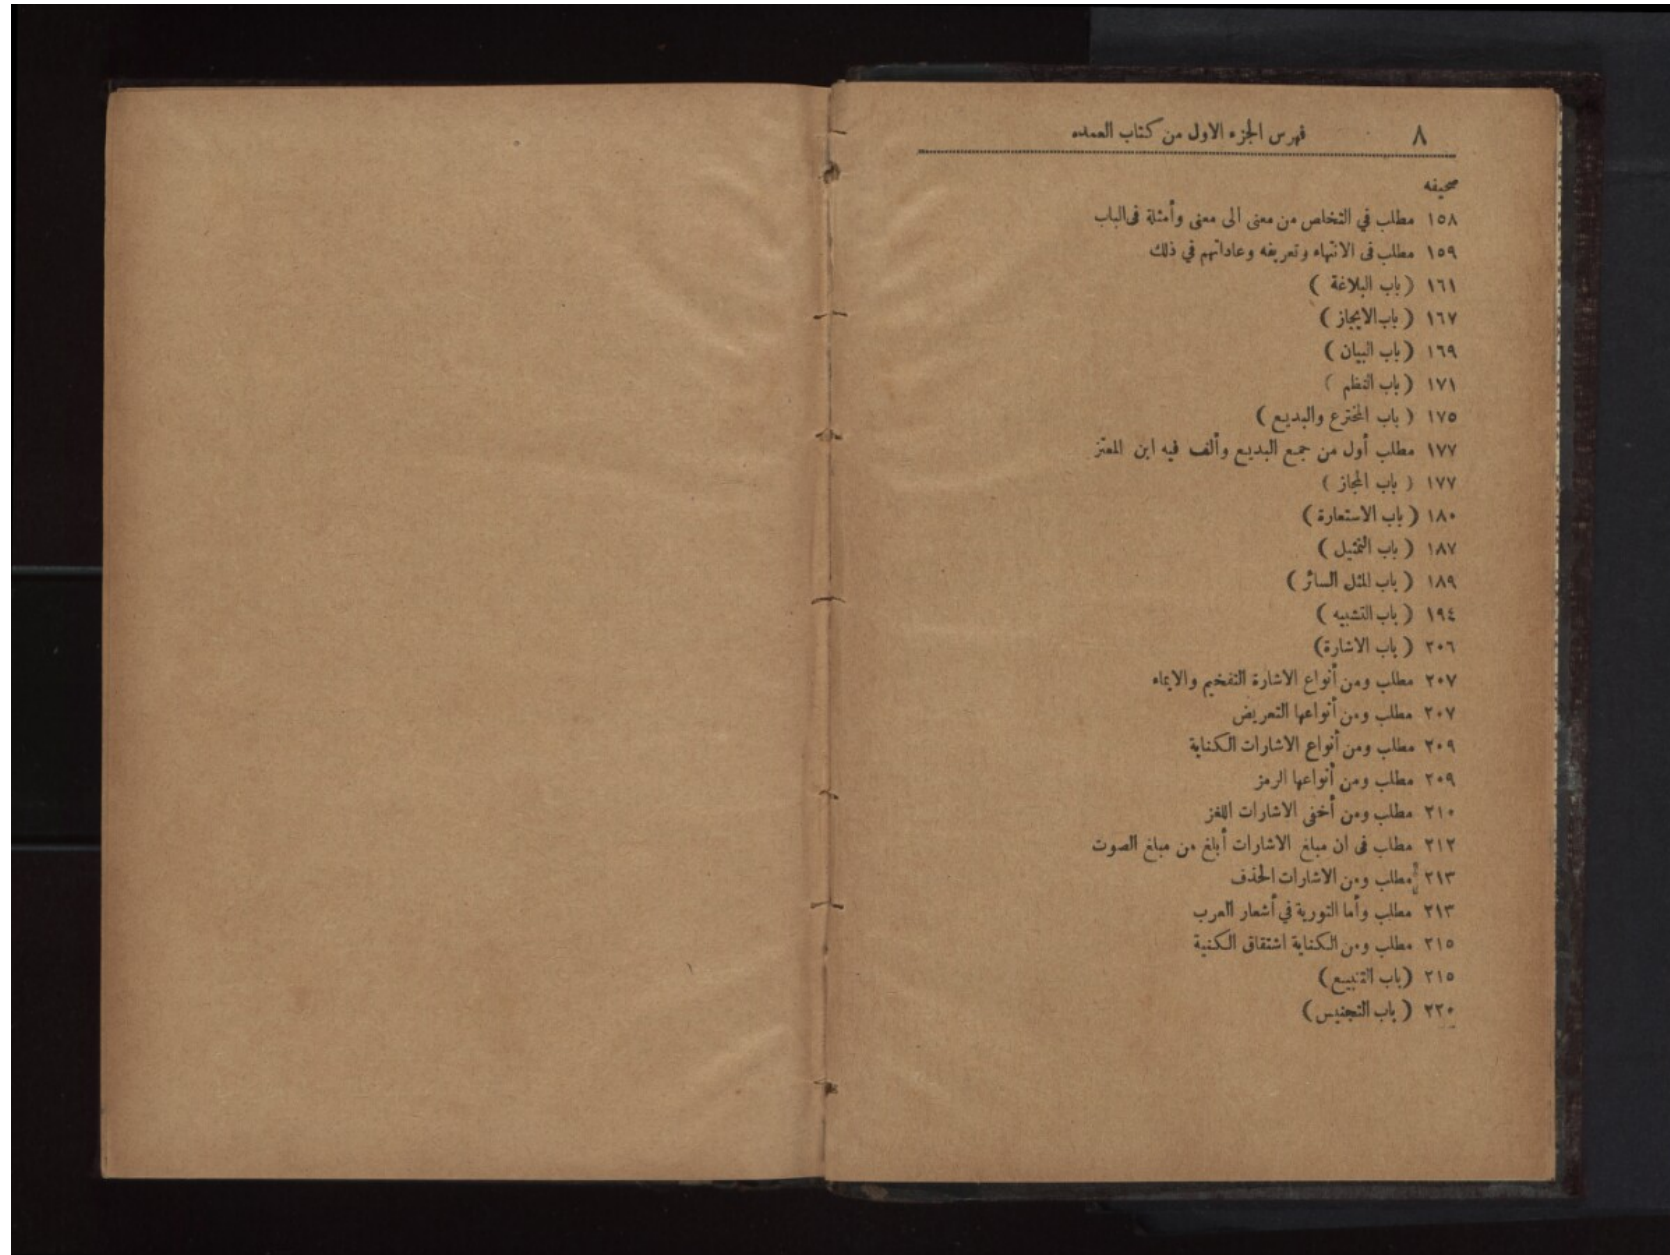 ٨ فهرس الجزء الاول من كتاب العمده
صحيفه
١٥٨ مطلب في التخلص من معنى الى معنى وأمثلة فى الباب
١٥٩ مطلب فى الانتهاء وتعريفه وعاداتهم في ذلك
١٦١ ( باب البلاغة )
١٦٧ ( باب الايجاز )
١٦٩ ( باب البيان )
١٧١ ( باب النظم )
١٧٥ ( باب المخترع والبديع )
١٧٧ مطلب أول من جمع البديع وألف فيه ابن المعتز
١٧٧ ( باب المجاز )
١٨٠ ( باب الاستعارة )
١٨٧ ( باب التمثيل )
١٨٩ ( باب المثل السائر )
١٩٤ ( باب التشبيه )
٢٠٦ ( باب الاشارة )
٢٠٧ مطلب ومن أنواع الاشارة التفخيم والايماء
٢٠٧ مطلب ومن أنواعها التعريض
٢٠٩ مطلب ومن أنواع الاشارات الكناية
٢٠٩ مطلب ومن أنواعها الرمز
٢١٠ مطلب ومن أخفى الاشارات اللغز
٢١٢ مطلب فى ان مبلغ الاشارات أبلغ من مبلغ الصوت
٢١٣ مطلب ومن الاشارات الحذف
٢١٣ مطلب وأما التورية في أشعار العرب
٢١٥ مطلب ومن الكناية اشتقاق الكنية
٢١٥ ( باب التتبيع )
٢٢٠ ( باب التجنيس )